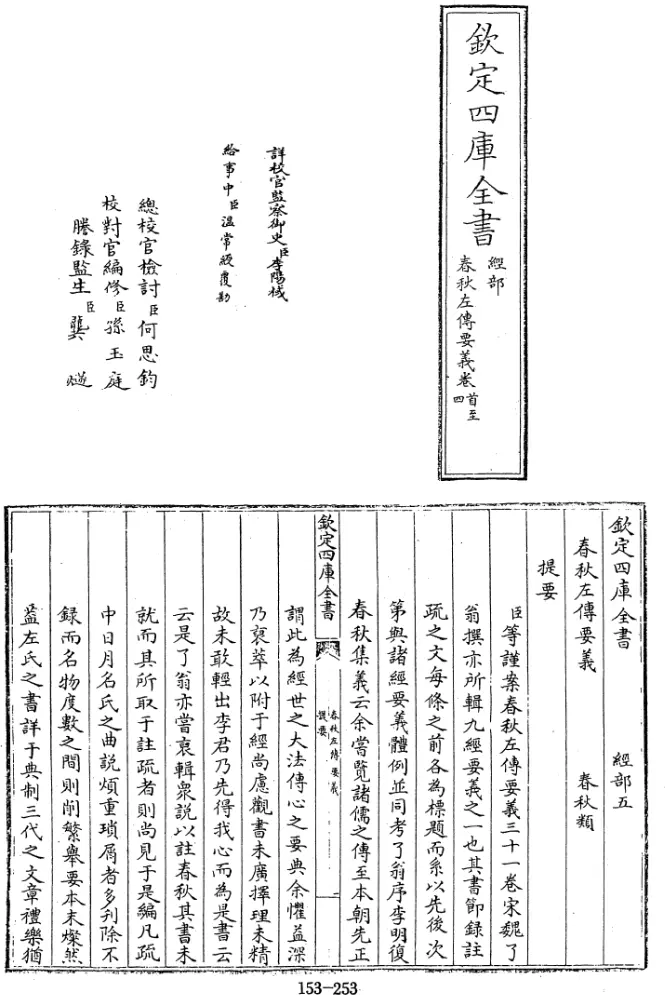 欽定四庫全書
經部
春秋左傳要義卷首至四
詳校官監察御史臣李陽棫
給事中臣溫常綬覆勘
總校官檢討臣何思鈞
校對官編修臣孫玉庭
謄錄監生臣龔燧
欽定四庫全書 經部五
春秋左傳要義 春秋類
提要
臣等謹案春秋左傳要義三十一卷宋魏了
翁撰亦所輯九經要義之一也其書節錄註
疏之文每條之前各為標題而系以先後次
第與諸經要義體例並同考了翁序李明復
春秋集義云余嘗覧諸儒之傳至本朝先正
欽定四庫全書
春秋左傳要義
提要
謂此為經世之大法傳心之要典余懼益深
乃裒萃以附于經尚慮觀書未廣擇理未精
故未敢輕出李君乃先得我心而為是書云
云是了翁亦嘗裒輯衆說以註春秋其書未
就而其所取于註疏者則尚見于是編凡疏
中日月名氏之曲說煩重瑣屑者多刋除不
録而名物度數之間則削繁舉要本末燦然
葢左氏之書詳于典制三代之文章禮樂猶
153-253